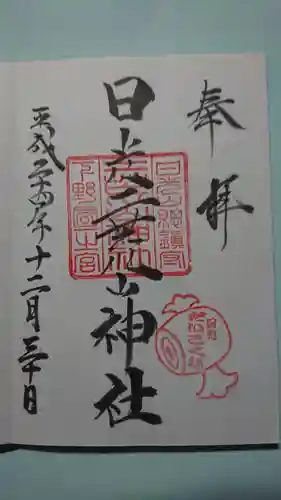 奉拝
日光山總鎮守
日光二荒山神社
二荒山神社
下野国一之宮
平成二十四年十二月三十日